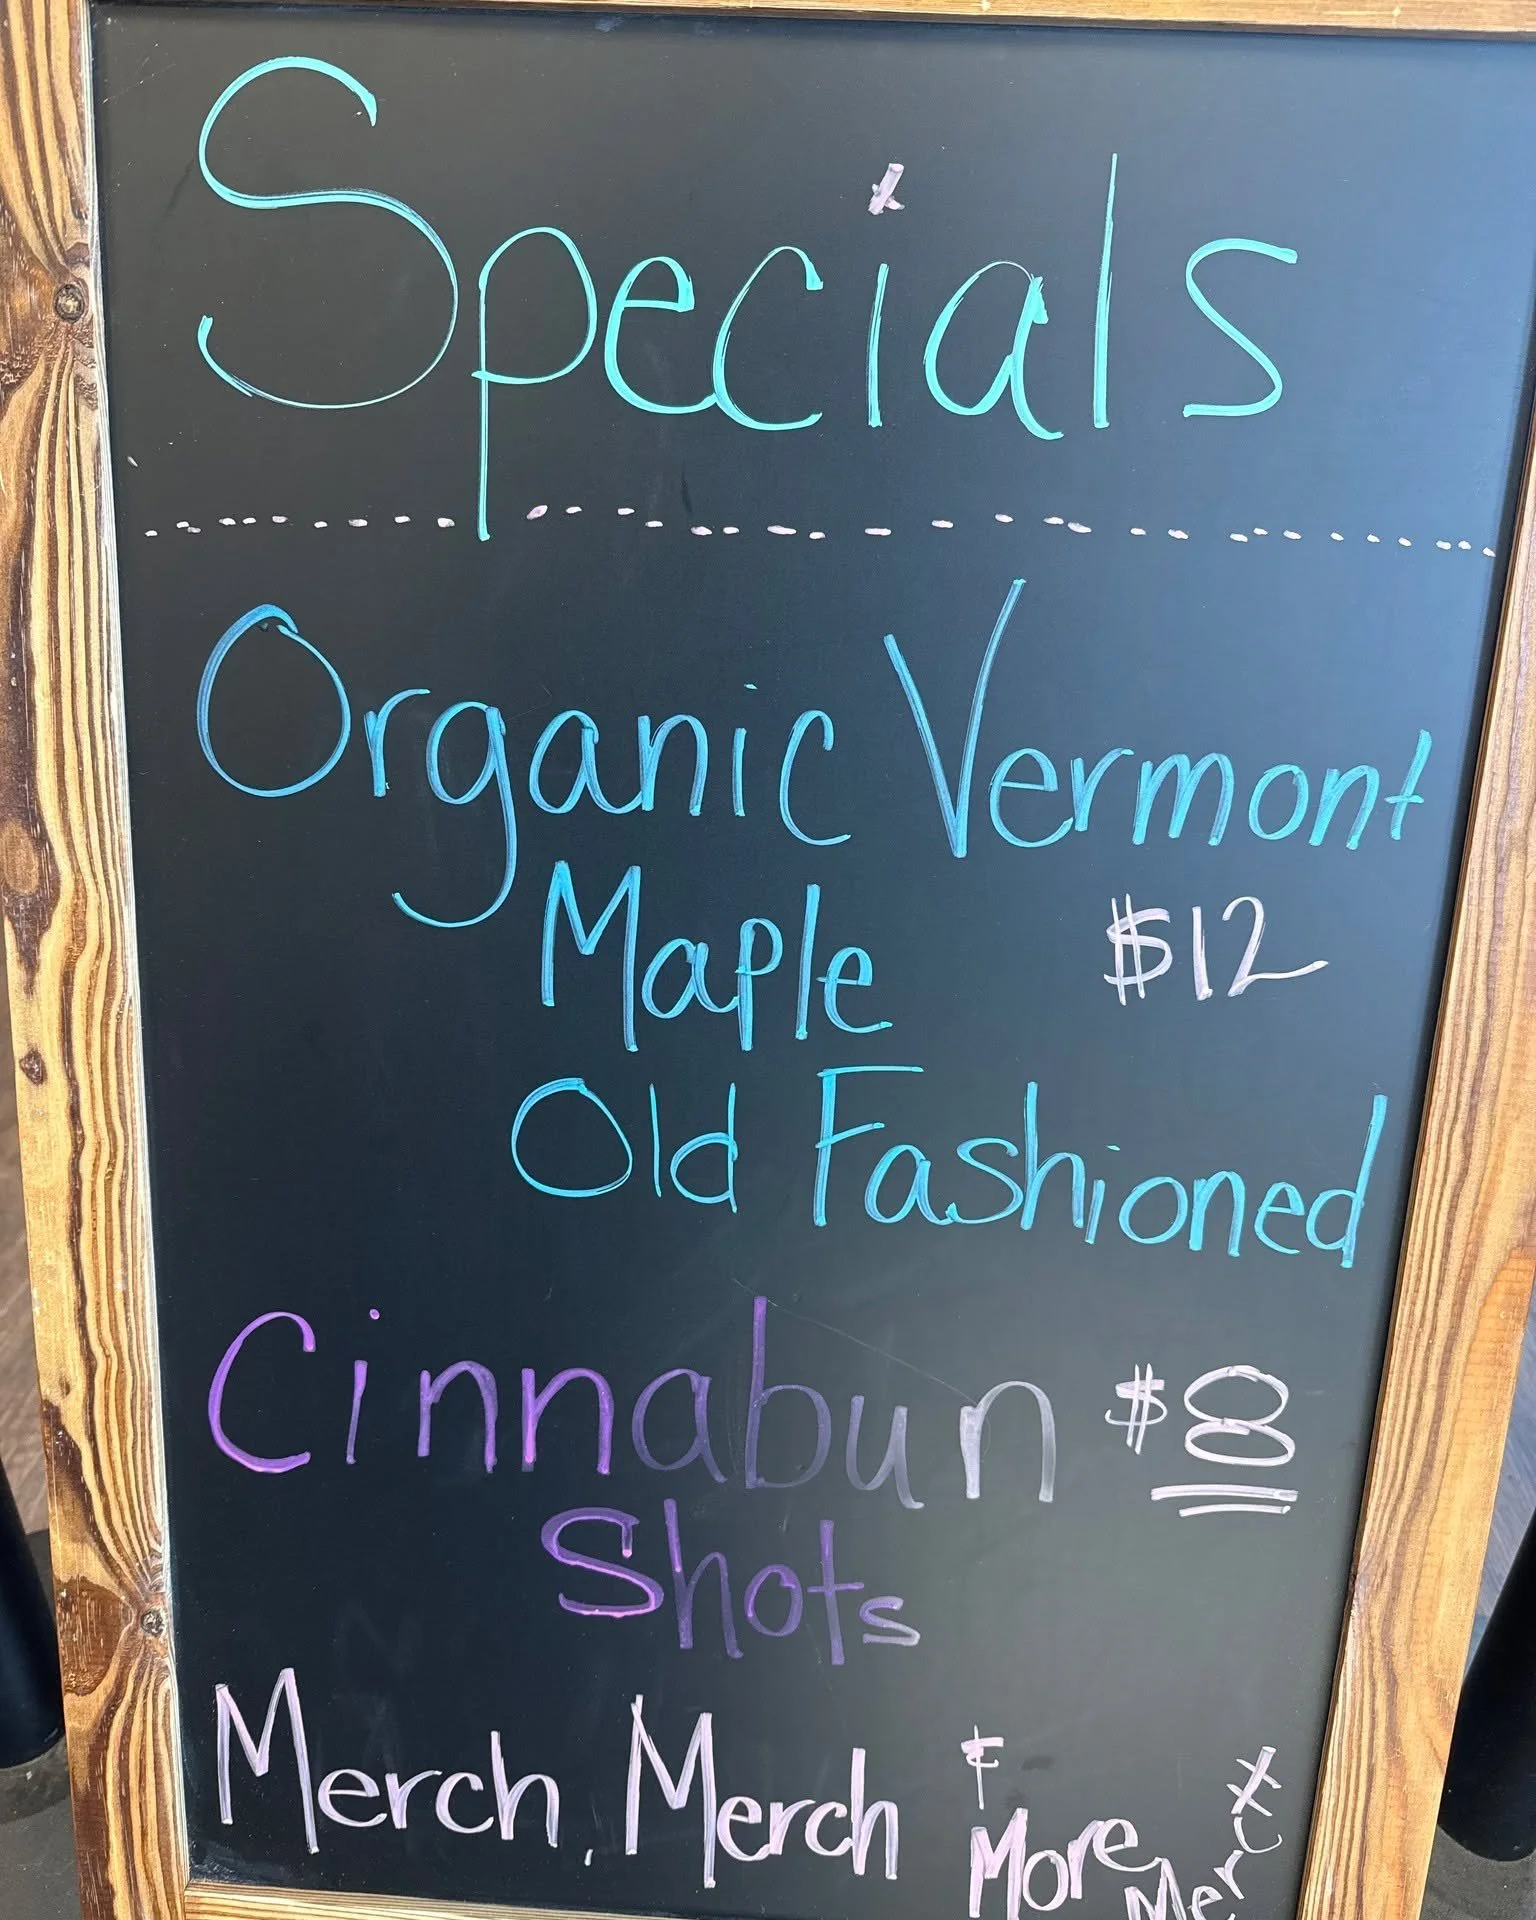 Specials
Organic Vermont
Maple $12
Old Fashioned
Cinnabun $8
Shots
Merch, Merch & More Merch